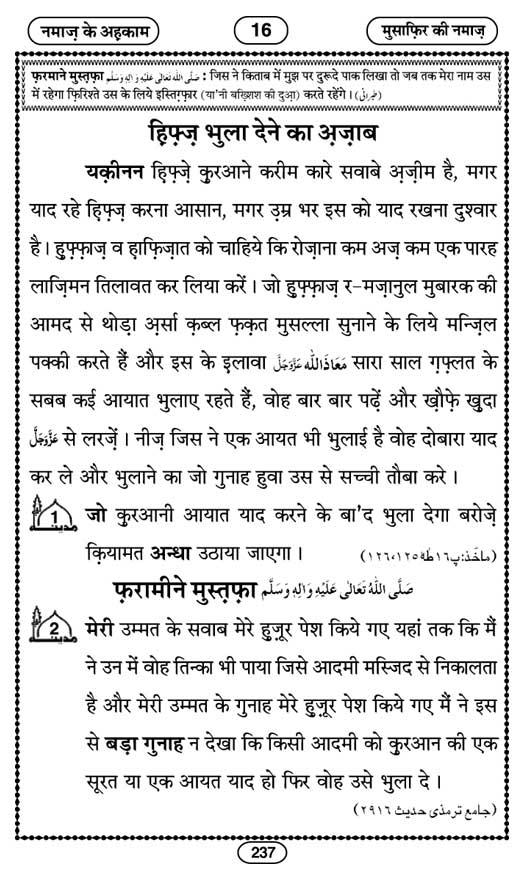 नमाज़ के अह़काम
16
मुसाफ़िर की नमाज़
फ़रमाने मुस्त़फ़ा صَلَّى اللهُ تَعَالٰى عَلَيْهِ وَاٰلِهٖ وَسَلَّم : जिस ने किताब में मुझ पर दुरूदे पाक लिखा तो जब तक मेरा नाम उस
में रहेगा फ़िरिश्ते उस के लिये इस्तिग़्फ़ार (या'नी बख़्शिश की दुआ़) करते रहेंगे। (طبرانی)
ह़िफ़्ज़ भुला देने का अ़ज़ाब
यक़ीनन ह़िफ़्ज़े क़ुरआने करीम कारे सवाबे अ़ज़ीम है, मगर
याद रहे ह़िफ़्ज़ करना आसान, मगर उ़म्र भर इस को याद रखना दुश्वार
है। हुफ़्फ़ाज़ व ह़ाफ़िज़ात को चाहिये कि रोज़ाना कम अज़ कम एक पारह
लाज़िमन तिलावत कर लिया करें। जो हुफ़्फ़ाज़ र-मज़ानुल मुबारक की
आमद से थोड़ा अ़र्सा क़ब्ल फ़क़त मुसल्ला सुनाने के लिये मन्ज़िल
पक्की करते हैं और इस के इ़लावा مَعَاذَ اللّٰه عَزَّوَجَلَّ सारा साल ग़फ़्लत के
सबब कई आयात भुलाए रहते हैं, वोह बार बार पढ़ें और ख़ौफ़े ख़ुदा
عَزَّوَجَلَّ से लरज़ें। नीज़ जिस ने एक आयत भी भुलाई है वोह दोबारा याद
कर ले और भुलाने का जो गुनाह हुवा उस से सच्ची तौबा करे।
1 जो क़ुरआनी आयात याद करने के बा'द भुला देगा बरोज़े
क़ियामत अन्धा उठाया जाएगा। (ماخَذ: پ١٦ طٰهٰ ١٢٥، ١٢٦)
फ़रामीने मुस्त़फ़ा صَلَّى اللهُ تَعَالٰى عَلَيْهِ وَاٰلِهٖ وَسَلَّم
2 मेरी उम्मत के सवाब मेरे हुज़ूर पेश किये गए यहां तक कि मैं
ने उन में वोह तिन्का भी पाया जिसे आदमी मस्जिद से निकालता
है और मेरी उम्मत के गुनाह मेरे हुज़ूर पेश किये गए मैं ने इस
से बड़ा गुनाह न देखा कि किसी आदमी को क़ुरआन की एक
सूरत या एक आयत याद हो फिर वोह उसे भुला दे।
(جامع ترمذی حدیث ٢٩١٦)
237